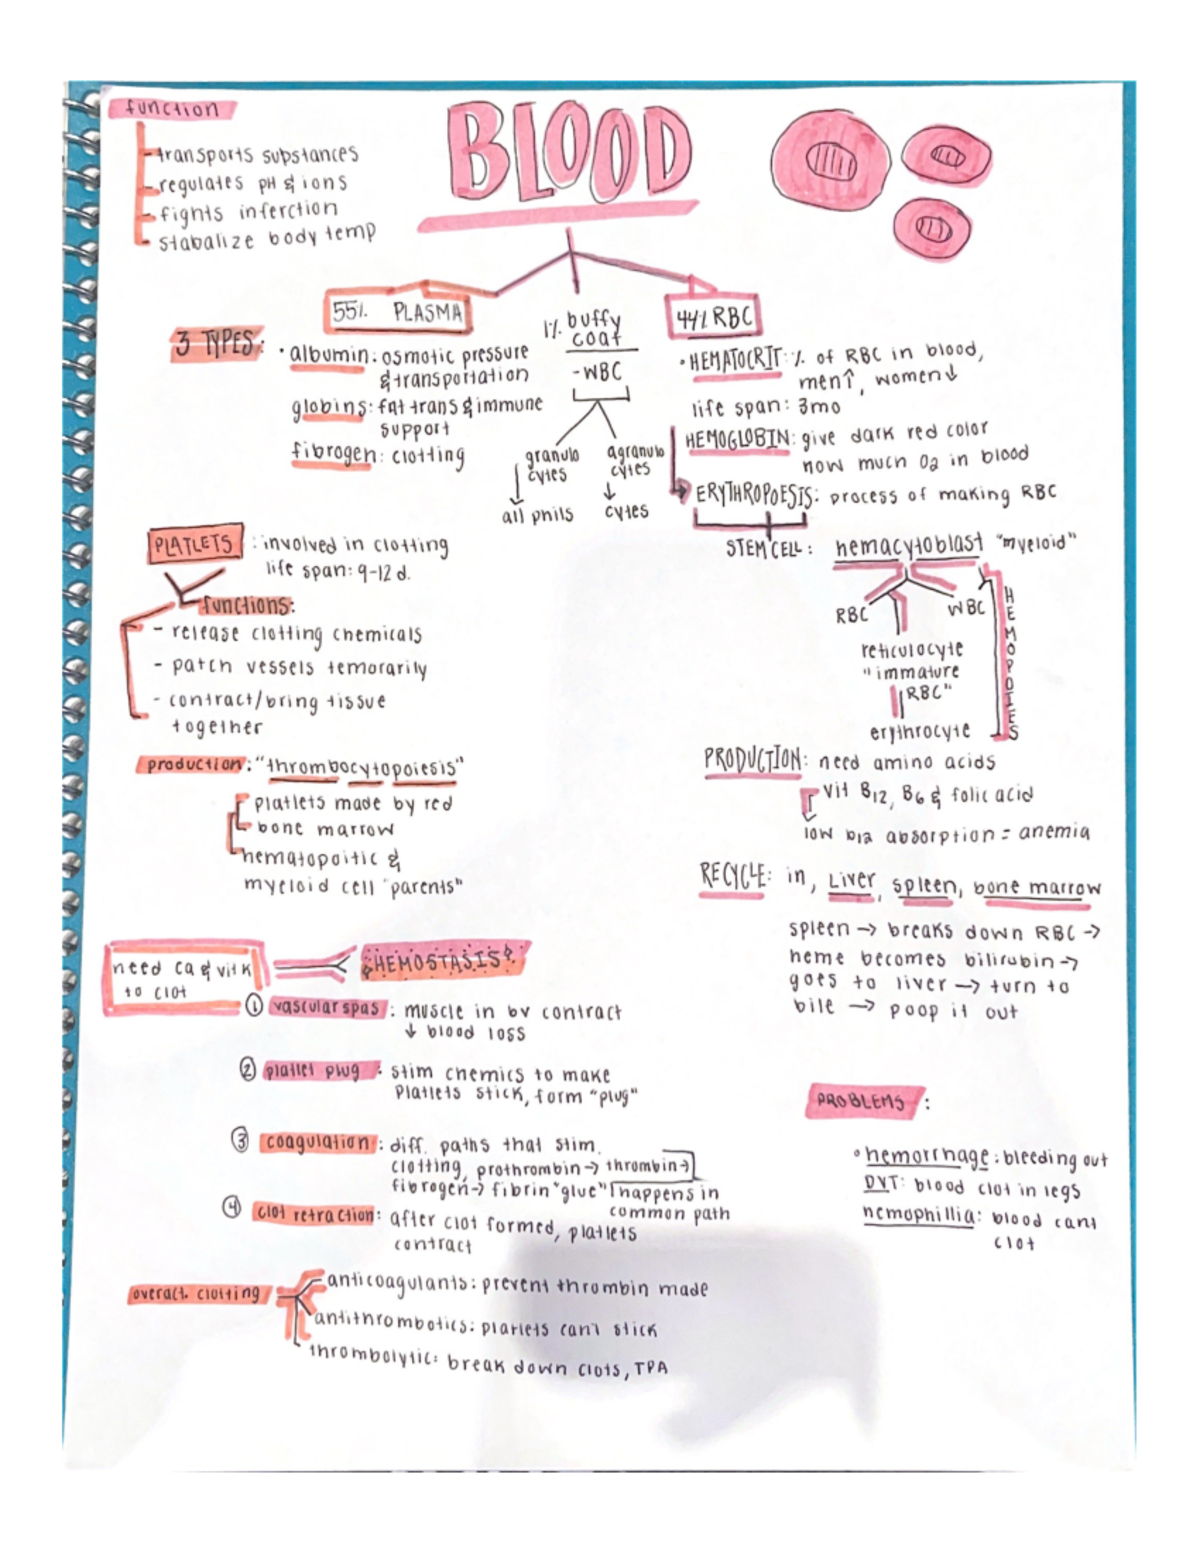 function
transports substances
regulates pH & ions
fights inferction
stabalize body temp
BLOOD
55% PLASMA
3 TYPES:
• albumin: osmotic pressure
& transportation
globins: fat trans & immune
support
fibrogen: clotting
1% buffy
coat
- WBC
granulo
cytes
all phils
agranulo
cytes
cytes
44% RBC
• HEMATOCRIT: % of RBC in blood,
men↑, women↓
life span: 3mo
HEMOGLOBIN: give dark red color
how much O2 in blood
ERYTHROPOESIS: process of making RBC
STEM CELL: hemacytoblast "myeloid"
RBC
WBC
reticulocyte
"immature
RBC"
erythrocyte
HEMOPOIES
PRODUCTION: need amino acids
vit B12, B6 & folic acid
low b12 absorption = anemia
RECYCLE: in, Liver, spleen, bone marrow
spleen → breaks down RBC →
heme becomes bilirubin →
goes to liver → turn to
bile → poop it out
PLATLETS: involved in clotting
life span: 9-12 d.
functions:
- release clotting chemicals
- patch vessels temorarily
- contract/bring tissue
together
production: "thrombocytopoiesis"
platlets made by red
bone marrow
hematopoitic &
myeloid cell "parents"
need Ca & vit K
to clot
HEMOSTASIS
① vascular spas: muscle in bv contract
↓ blood loss
② platlet plug: stim chemics to make
Platlets stick, form "plug"
③ coagulation: diff. paths that stim.
clotting, prothrombin → thrombin →
fibrogen → fibrin "glue" happens in
common path
④ clot retraction: after clot formed, platlets
contract
overact. clotting
anticoagulants: prevent thrombin made
antithrombotics: platlets can't stick
thrombolytic: break down clots, TPA
PROBLEMS:
• hemorrhage: bleeding out
DVT: blood clot in legs
hemophillia: blood cant
clot